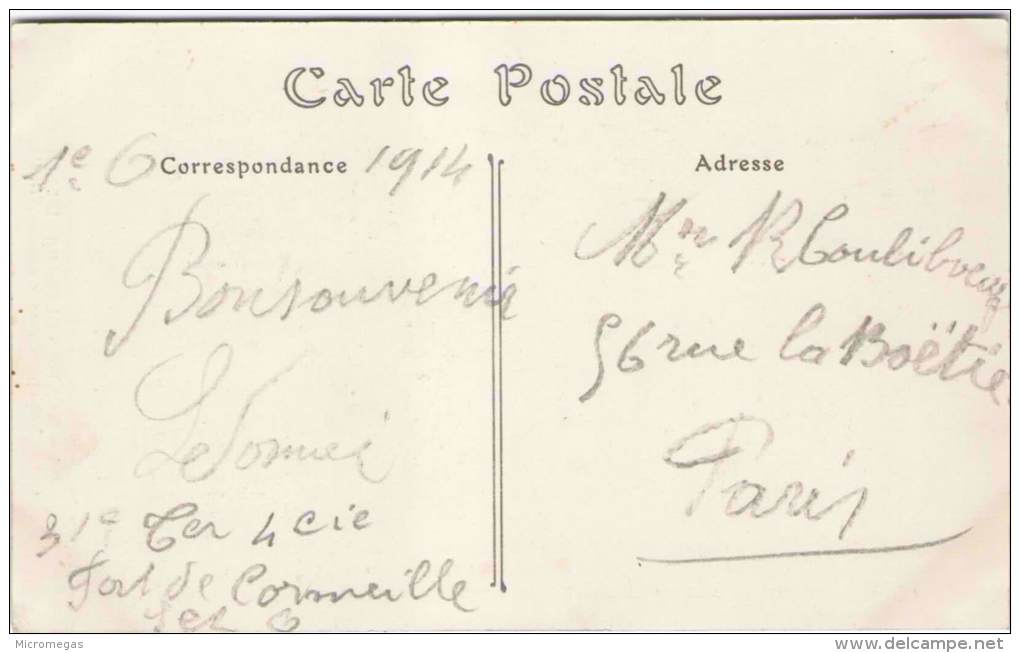 Carte Postale
Correspondance
1914
Bonsouvenir
31e Ter 4 cie
Fort de Cormeille
S et O
Adresse
56 rue la Boëtie
Paris
Micromegas
www.delcampe.net